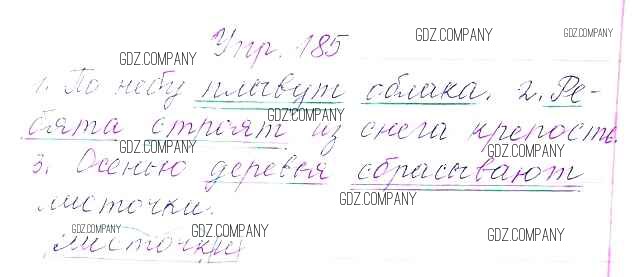 Упр. 185
1. По небу плывут облака. 2. Ре-
бята строят из снега крепость.
3. Осенью деревья сбрасывают
листочки.
листочки
GDZ.COMPANY
GDZ.COMPANY
GDZ.COMPANY
GDZ.COMPANY
GDZ.COMPANY
GDZ.COMPANY
GDZ.COMPANY
GDZ.COMPANY
GDZ.COMPANY
GDZ.COMPANY